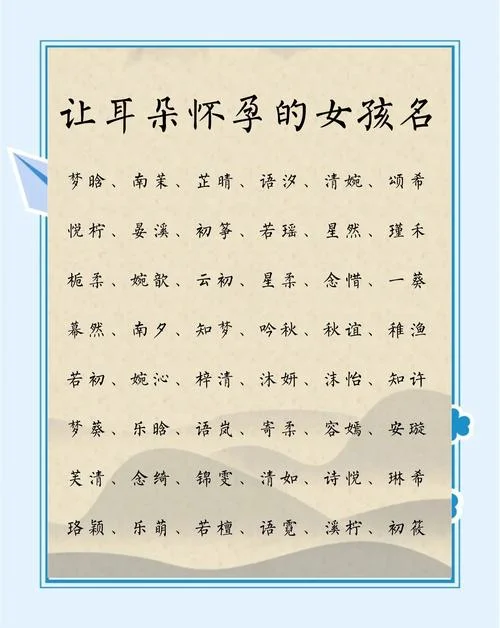 让耳朵怀孕的女孩名
梦晗、南茉、芷晴、语汐、清婉、颂希
悦柠、晏溪、初筝、若瑶、星然、瑾禾
栀柔、婉歆、云初、星柔、念惜、一葵
暮然、南夕、知梦、吟秋、秋谊、稚渔
若初、婉沁、梓清、沐妍、沫怡、知许
梦葵、乐晗、语岚、寄柔、容嫣、安璇
芙清、念绮、锦雯、清如、诗悦、琳希
珞颖、乐萌、若檀、语霓、溪柠、初筱